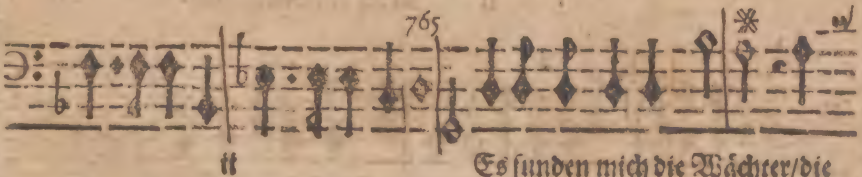 765
ii Es funden mich die Wächter/die